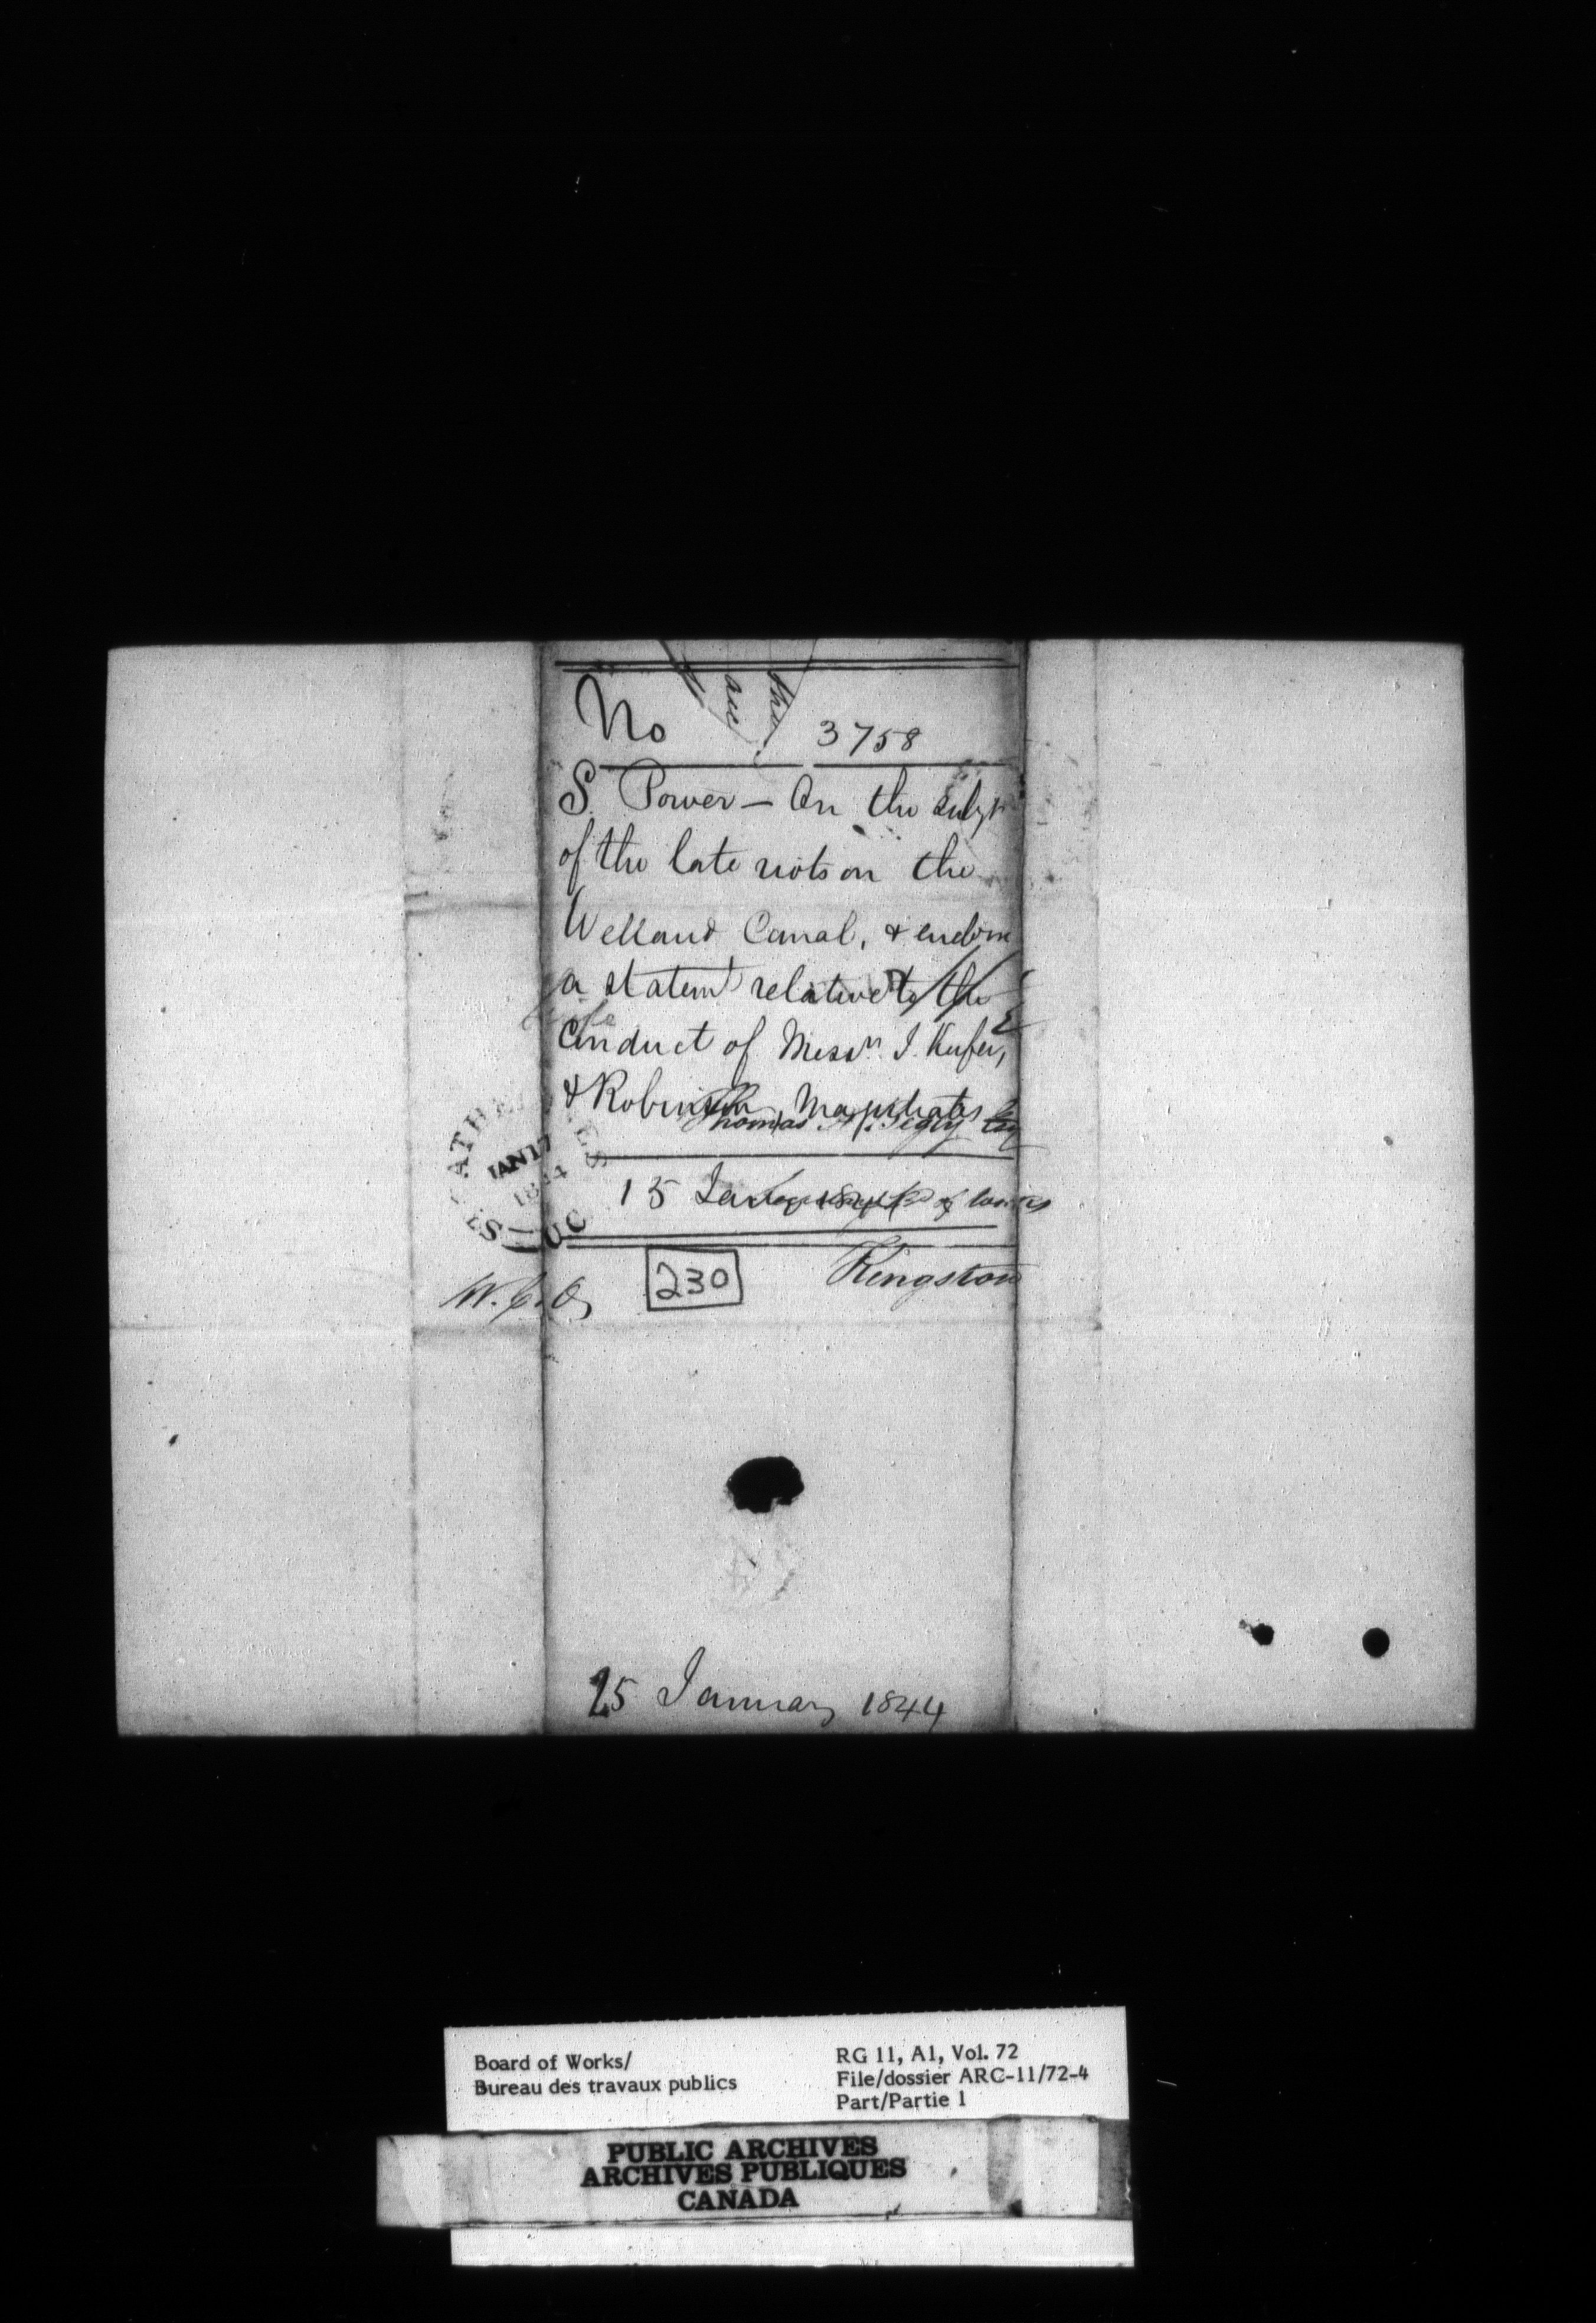 No 3758
S. Power — On the subjt
of the late riots on the
Welland Canal, & enclosing
a statemt relative to the
Conduct of Messrs
& Robinson Magistrates
Thomas A. Begly Esq
15 January 1844
of works
ST CATHARINES
JAN 17
1844
U C
Kingston
W. C. O.
230
25 January 1844
Board of Works/
Bureau des travaux publics
RG 11, A1, Vol. 72
File/dossier ARC-11/72-4
Part/Partie 1
PUBLIC ARCHIVES
ARCHIVES PUBLIQUES
CANADA